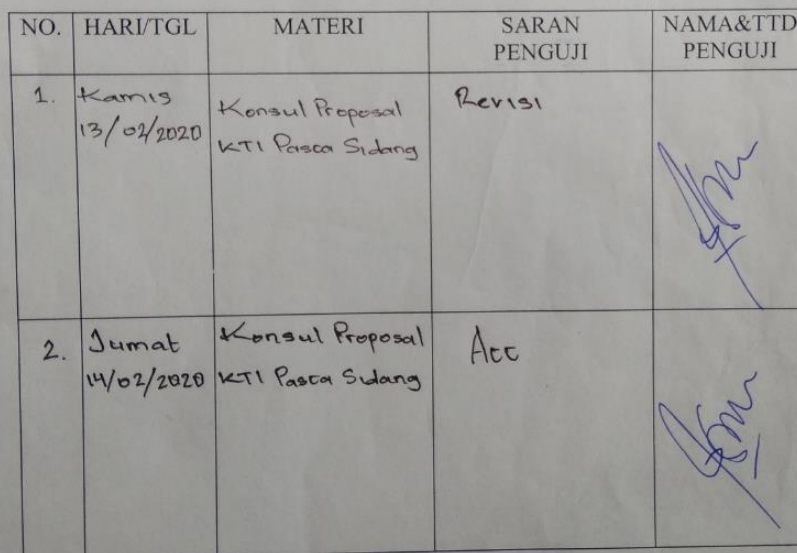 NO. HARI/TGL MATERI SARAN PENGUJI NAMA&TTD PENGUJI
1. Kamis 13/02/2020 Konsul Proposal KTI Pasca Sidang Revisi
2. Jumat 14/02/2020 Konsul Proposal KTI Pasca Sidang Acc